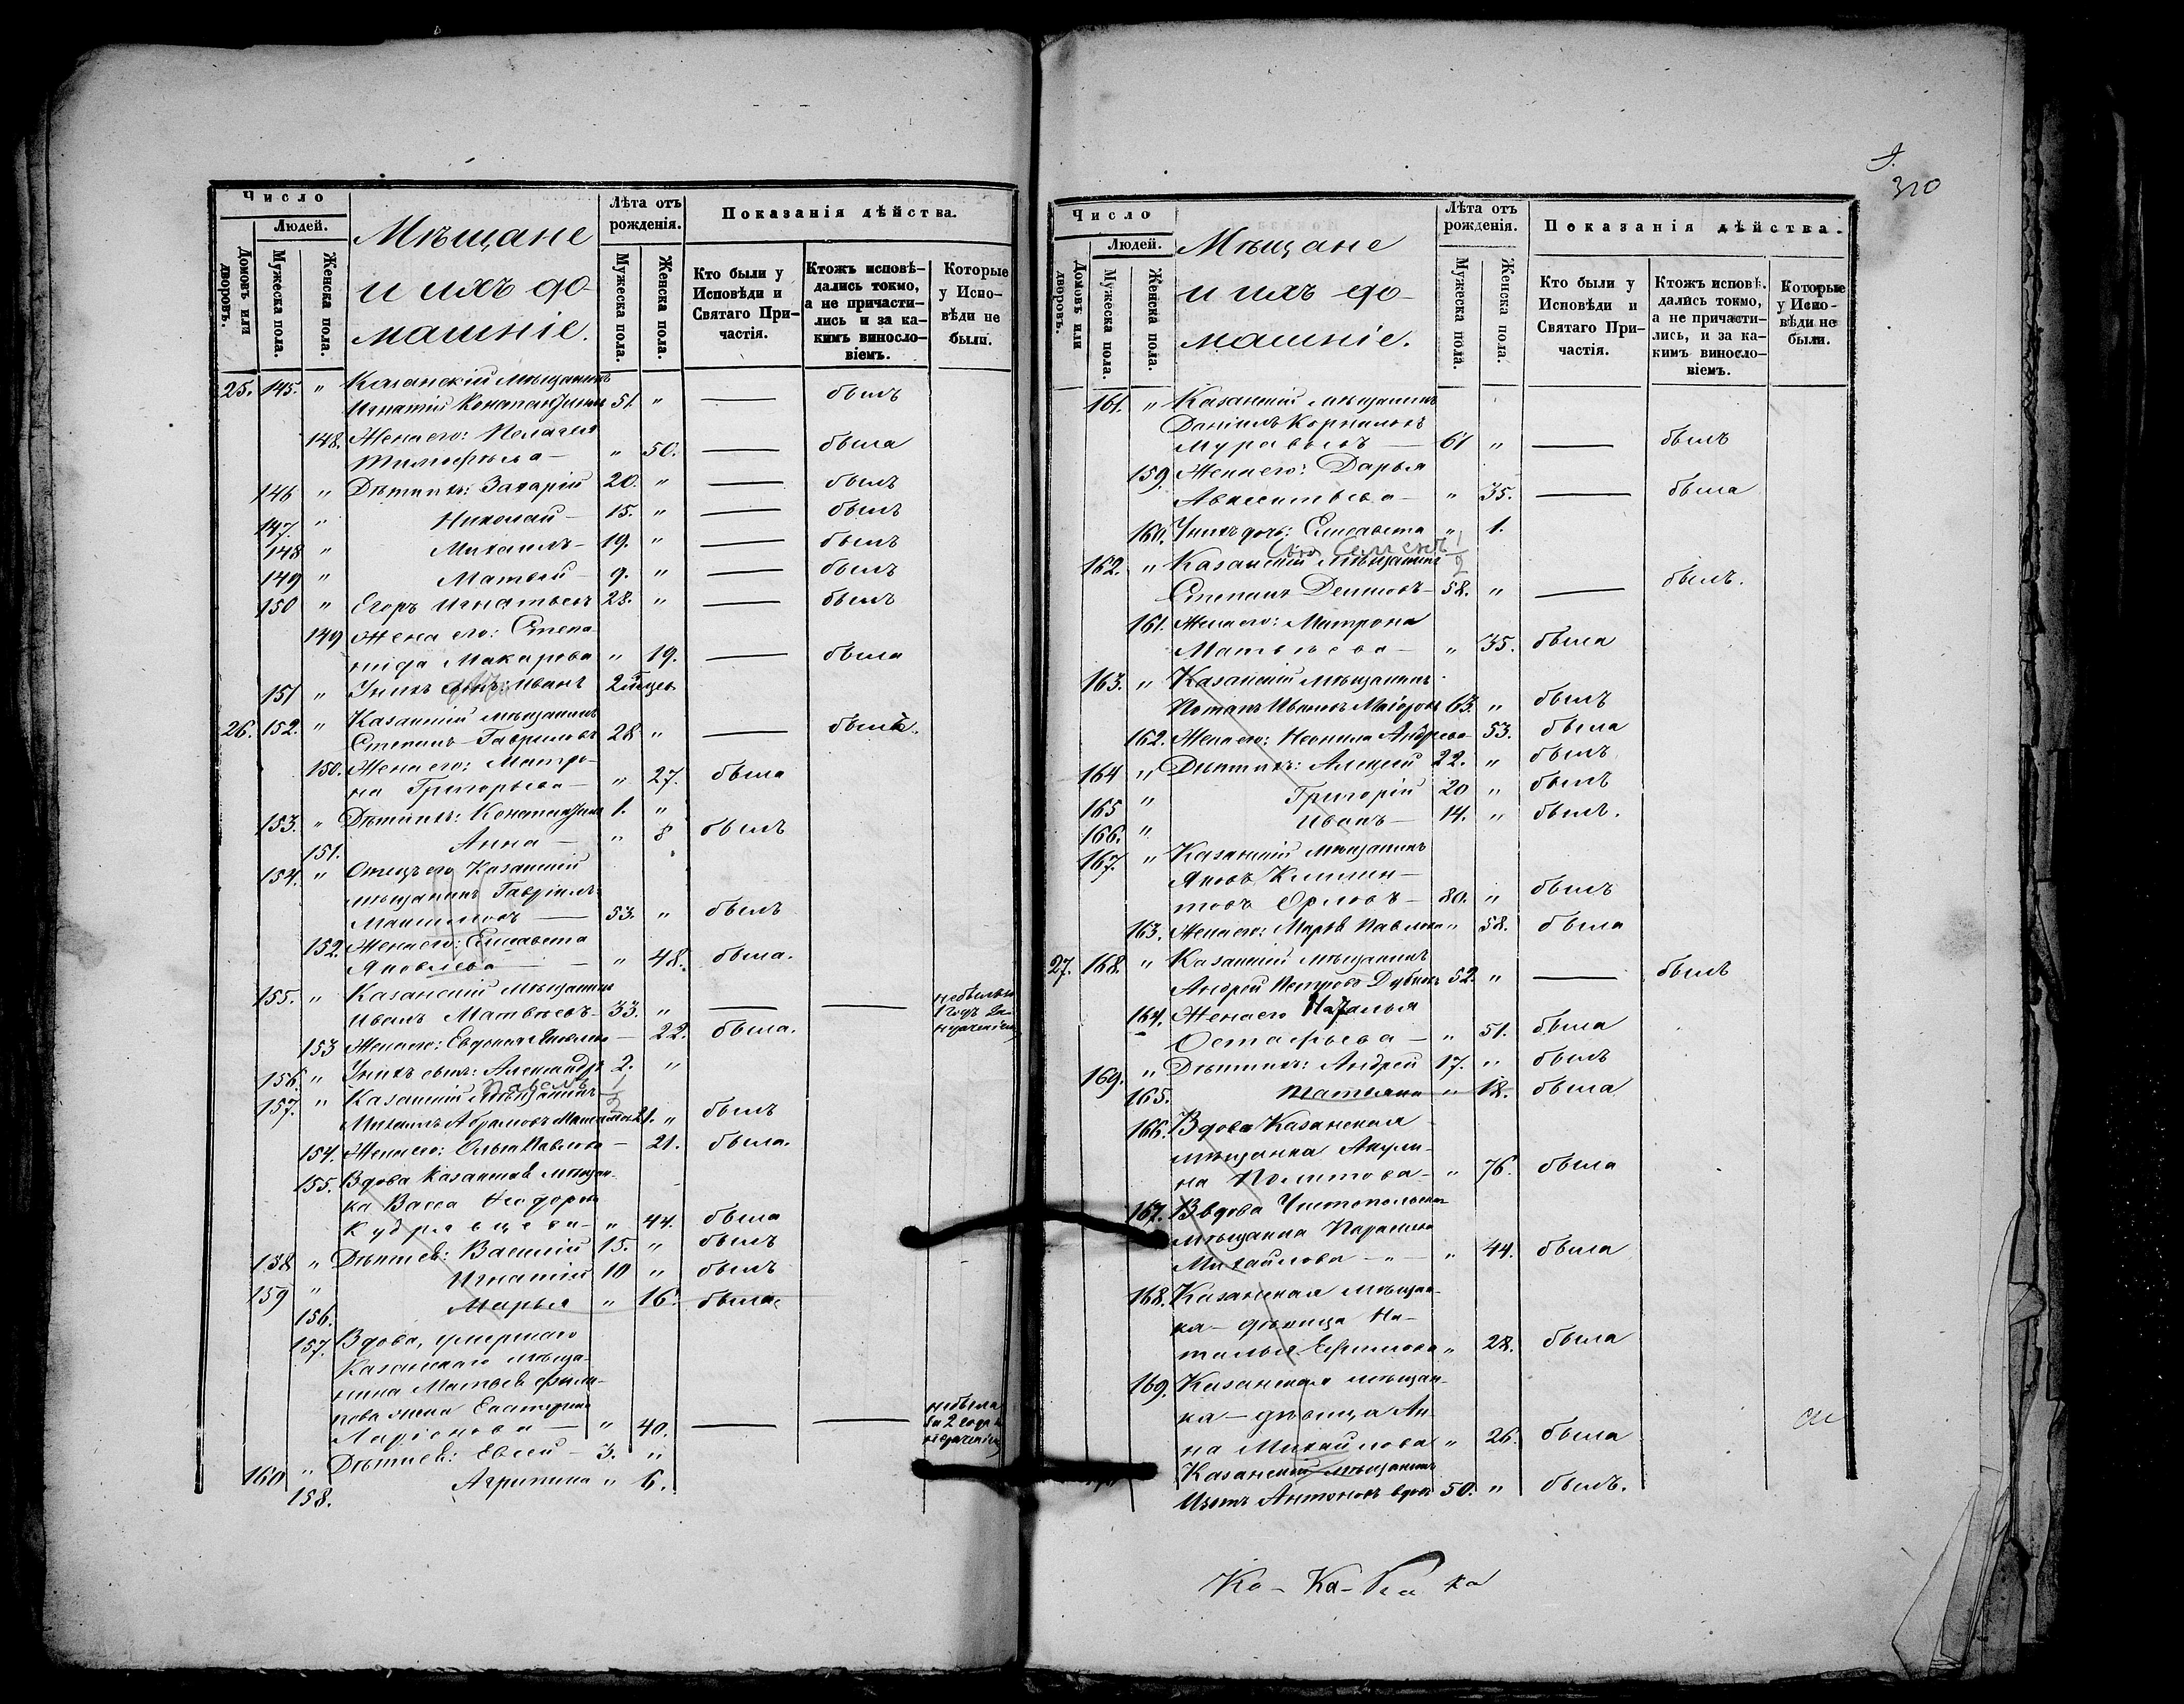 Число
Людей.
Домовъ или дворовъ.
Мужеска пола.
Женска пола.
Мѣщане
и ихъ до-
машніе.
Лѣта отъ рожденія.
Мужеска пола.
Женска пола.
Показанія дѣйства.
Кто были у Исповѣди и Святаго При-частія.
Ктожъ исповѣ-дались токмо, а не причасти-лись и за ка-кимъ винosло-віемъ.
Которые у Испо-вѣди не были.
25. 145. " Казанскій мѣщанинъ
Игнатій Константинов 51. " — былъ
148. Жена его: Пелагея
Тимофѣева — " 50. — была
146 " Дѣти ихъ: Захарій 20. " — былъ
147. " Николай — 15. " — былъ
148 " Михаилъ — 19. " — былъ
149 " Матвѣй — 9. " — былъ
150 " Егоръ Игнатьевъ 28. " — былъ
149 Жена его: Степа-
нида Макарова " 19. — была
151 " У нихъ сынъ: Иванъ
26. 152. " Казанскій мѣщанинъ
Степанъ Гавриловъ 28 " — былъ.
150. Жена его: Матро-
на Григорьева — " 27. была
153. " Дѣти ихъ: Константинъ 1. "
151. Анна — " 8 былъ
154. " Отецъ его Казанскій
мѣщанинъ Гавріилъ
53. " былъ
152. Жена его: Елисавета
Яковлева — " 48. была.
155. " Казанскій мѣщанинъ
Иванъ Матвѣевъ — 33. " — —
153 Жена его: Евдокія — 22. была.
156. " У нихъ сынъ: Александръ 2. "
Павелъ 1/2
157. " Казанскій мѣщанинъ
Михаилъ Абрамовъ 21. " былъ
154. Жена его: Ольга Павлова — 21. была.
155. Вдова Казанская мѣщан-
ка Васса Ѳеодорова
Кудрявцева — " 44. была
158 " Дѣти ея: Василій 15. " былъ
159 " Игнатій 10 " былъ
156. Марья " 16. была
157. Вдова, умершаго
Казанскаго мѣща-
нина Матвѣя Фили-
пова жена Екатерина
Ларіонова — " 40. — — не была
160 " Дѣти ея: Евсей — 3. "
158. Агрипина " 6.
320
Число
Людей.
Домовъ или дворовъ.
Мужеска пола.
Женска пола.
Мѣщане
и ихъ до-
машніе.
Лѣта отъ рожденія.
Мужеска пола.
Женска пола.
Показанія дѣйства.
Кто были у Исповѣди и Святаго При-частія.
Ктожъ исповѣ-дались токмо, а не причасти-лись, и за ка-кимъ винosло-віемъ.
Которые у Испо-вѣди не были.
161. " Казанскій мѣщанинъ
Даніилъ Корниловъ
Муравьевъ — 61 " — былъ
159. Жена его: Дарья
Авксентьева — " 35. — была
160. У нихъ дочь: Елисавета " 1.
Сынъ Семенъ 1/2
162. " Казанскій мѣщанинъ
Степанъ Денисовъ — 58. " — былъ.
161. Жена его: Матрона
Матвѣева — " 35. была
163. " Казанскій мѣщанинъ
Потапъ Ивановъ Маіоровъ 63. " былъ
162. Жена его: Неонила Андреева 53. была
164 " Дѣти ихъ: Алексѣй 22. " былъ
165 " Григорій 20 " былъ
166. " Иванъ — 14. " былъ.
167. " Казанскій мѣщанинъ
Яковъ Климен-
товъ Орловъ — 80. " былъ
163. Жена его: Марѳа Павлова " 58. была
27. 168. " Казанскій мѣщанинъ
Андрей Петровъ Дубковъ 52. " — былъ
164. Жена его Наталья
Остафьева — " 51. была
169. " Дѣти ихъ: Андрей 17. " былъ
165. Татьяна " 18. была
166. Вдова Казанская
мѣщанка Акули-
на Политова — " 76. была
167. Вдова Чистопольская
мѣщанка Параскева
Михайлова — " — " 44. была
168. Казанская мѣщан-
ка — дѣвица На-
талья Ефимова " 28. была
169. Казанская мѣщан-
ка — дѣвица Ан-
на Михайлова " 26. была
Казанскій мѣщанинъ
Изотъ Антоновъ вдовъ 50. " былъ.